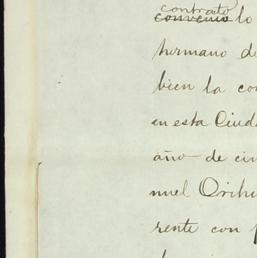 contrato
convenio lo
hermano de
bien la con
en esta Ciuda
año de cin
nuel Orihu
rente con